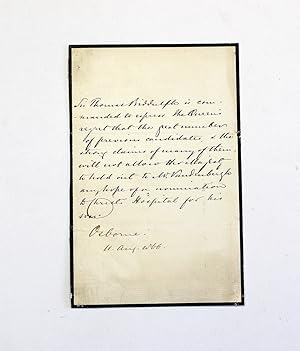 Sir Thomas Biddulph is com-
manded to express the Queen's
regret that the great number
of previous candidates, & the
strong claims of many of them,
will not allow Her Majesty
to hold out to Mr Vandenbergh
any hope of a nomination
to Christ's Hospital for his
son.
Osborne.
11. Aug. 1866.